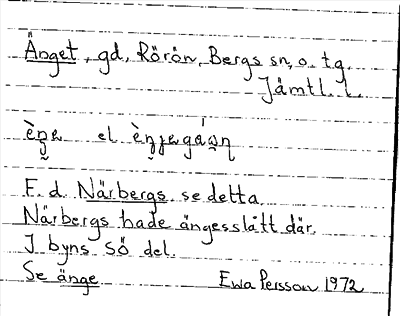 Änget, gd, Rörön, Bergs sn, o. t.g.
Jämtl. l.
el
F. d. Närbergs, se detta.
Närbergs hade ängesslått där.
I byns sö del.
Se änge Ewa Persson 1972